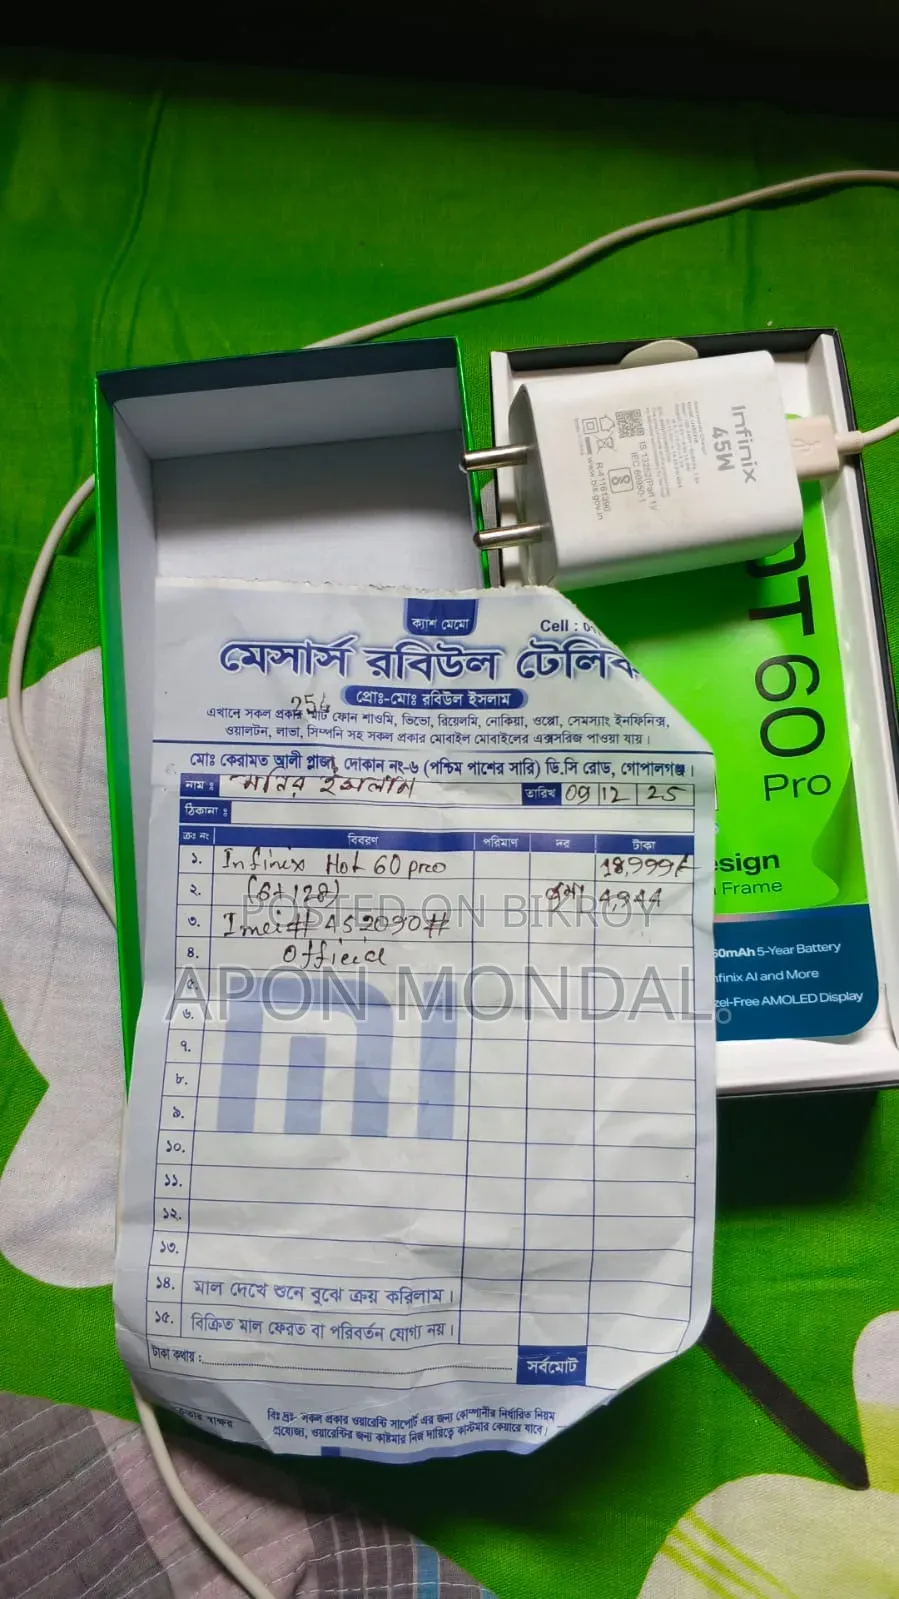 Infinix
45W
IS 13252(Part 1)/
IEC 60950-1
R-41161390
www.bis.gov.in
OT 60
Pro
esign
Frame
60mAh 5-Year Battery
nfinix AI and More
zel-Free AMOLED Display
ক্যাশ মেমো
Cell : 01
মেসার্স রবিউল টেলিক
প্রোঃ-মোঃ রবিউল ইসলাম
এখানে সকল প্রকার স্মার্ট ফোন শাওমি, ভিভো, রিয়েলমি, নোকিয়া, ওপ্পো, সেমস্যাং ইনফিনিক্স,
ওয়ালটন, লাভা, সিম্পনি সহ সকল প্রকার মোবাইল মোবাইলের এক্সসরিজ পাওয়া যায়।
মোঃ কেরামত আলী প্লাজা, দোকান নং-৬ (পশ্চিম পাশের সারি) ডি.সি রোড, গোপালগঞ্জ।
নাম : মনির ইসলাম তারিখ 09 12 25
ঠিকানা :
ক্রঃ নং বিবরণ পরিমাণ দর টাকা
১. Infinix Hot 60 pro 18,999/-
২. (8+128) 4944
৩. Imei# 452090#
৪. Official
৫.
৬.
৭.
৮.
৯.
১০.
১১.
১২.
১৩.
১৪. মাল দেখে শুনে বুঝে ক্রয় করিলাম।
১৫. বিক্রিত মাল ফেরত বা পরিবর্তন যোগ্য নয়।
টাকা কথায় : সর্বমোট
স্বাক্ষর
বিঃ দ্রঃ- সকল প্রকার ওয়ারেন্টি সাপোর্ট এর জন্য কোম্পানীর নির্ধারিত নিয়ম
প্রযোজ্য, ওয়ারেন্টির জন্য কাষ্টমার নিজ দায়িত্বে কাস্টমার কেয়ারে যাবে।
POSTED ON BIKROY
APON MONDAL